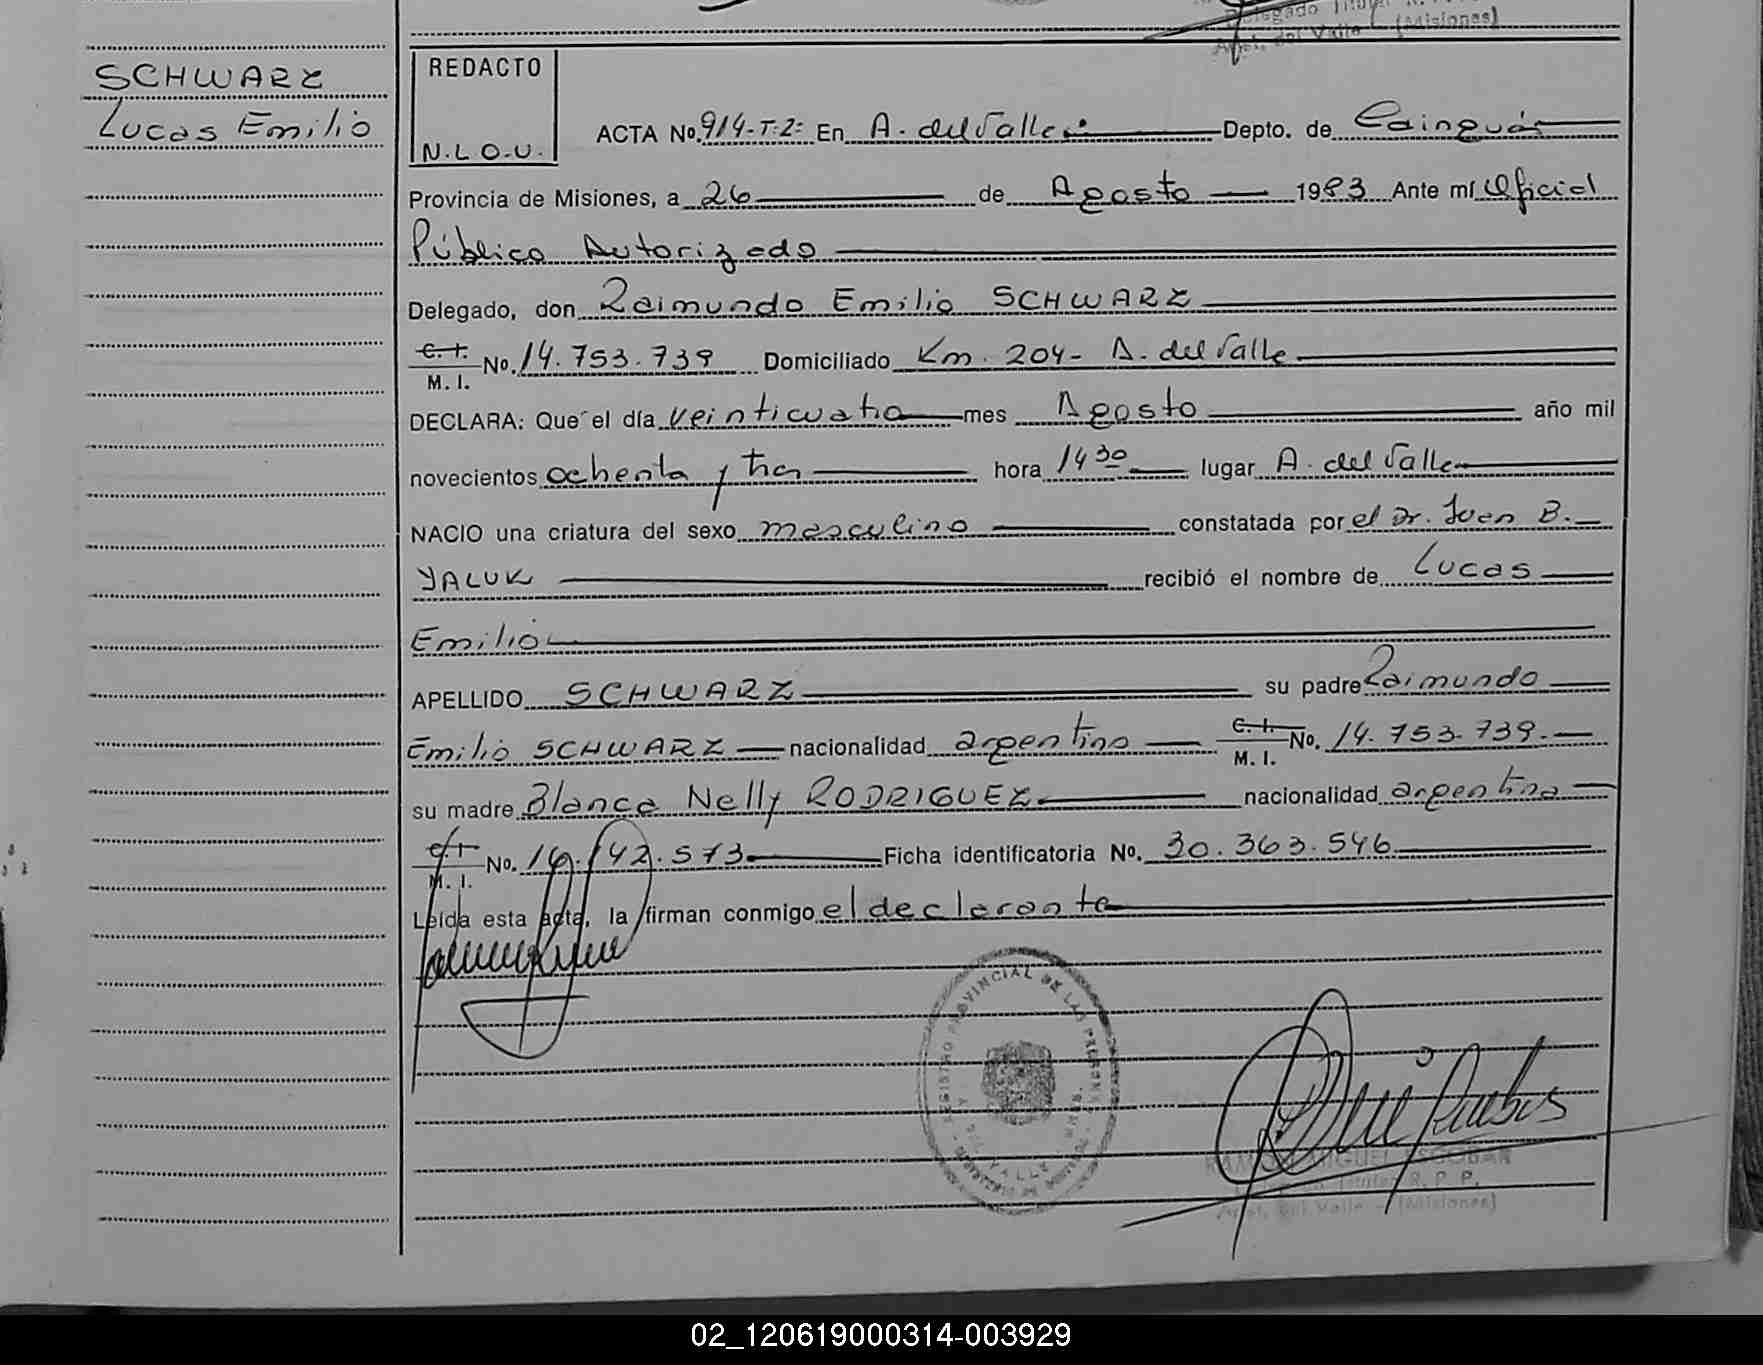 Delegado Titular
A. del Valle - (Misiones)
SCHWARZ
Lucas Emilio
REDACTO
N.L.O.U.
ACTA No. 914-T:2: En A. del Valle Depto. de Cainguás
Provincia de Misiones, a 26 de Agosto 1983 Ante mí Oficial
Público Autorizado
Delegado, don Raimundo Emilio SCHWARZ
C. I. M. I. No. 14.753.739 Domiciliado Km. 204- A. del Valle
DECLARA: Que el día veinticuatro mes Agosto año mil
novecientos ochenta y tres hora 14 30 lugar A. del Valle
NACIO una criatura del sexo masculino constatada por el Dr. Juan B.
YALUK recibió el nombre de Lucas
Emilio
APELLIDO SCHWARZ su padre Raimundo
Emilio SCHWARZ nacionalidad argentino C. I. M. I. No. 14.753.739.-
su madre Blanca Nelly RODRIGUEZ nacionalidad argentina
C. I. M. I. No. Ficha identificatoria No. 30.363.546
Leída esta acta, la firman conmigo el declarante
REGISTRO PROVINCIAL DE LAS PERSONAS
DEL VALLE
RAMON MIGUEL ESCOBAR
Delegado Titular R. P. P.
A. del Valle - (Misiones)
02_120619000314-003929